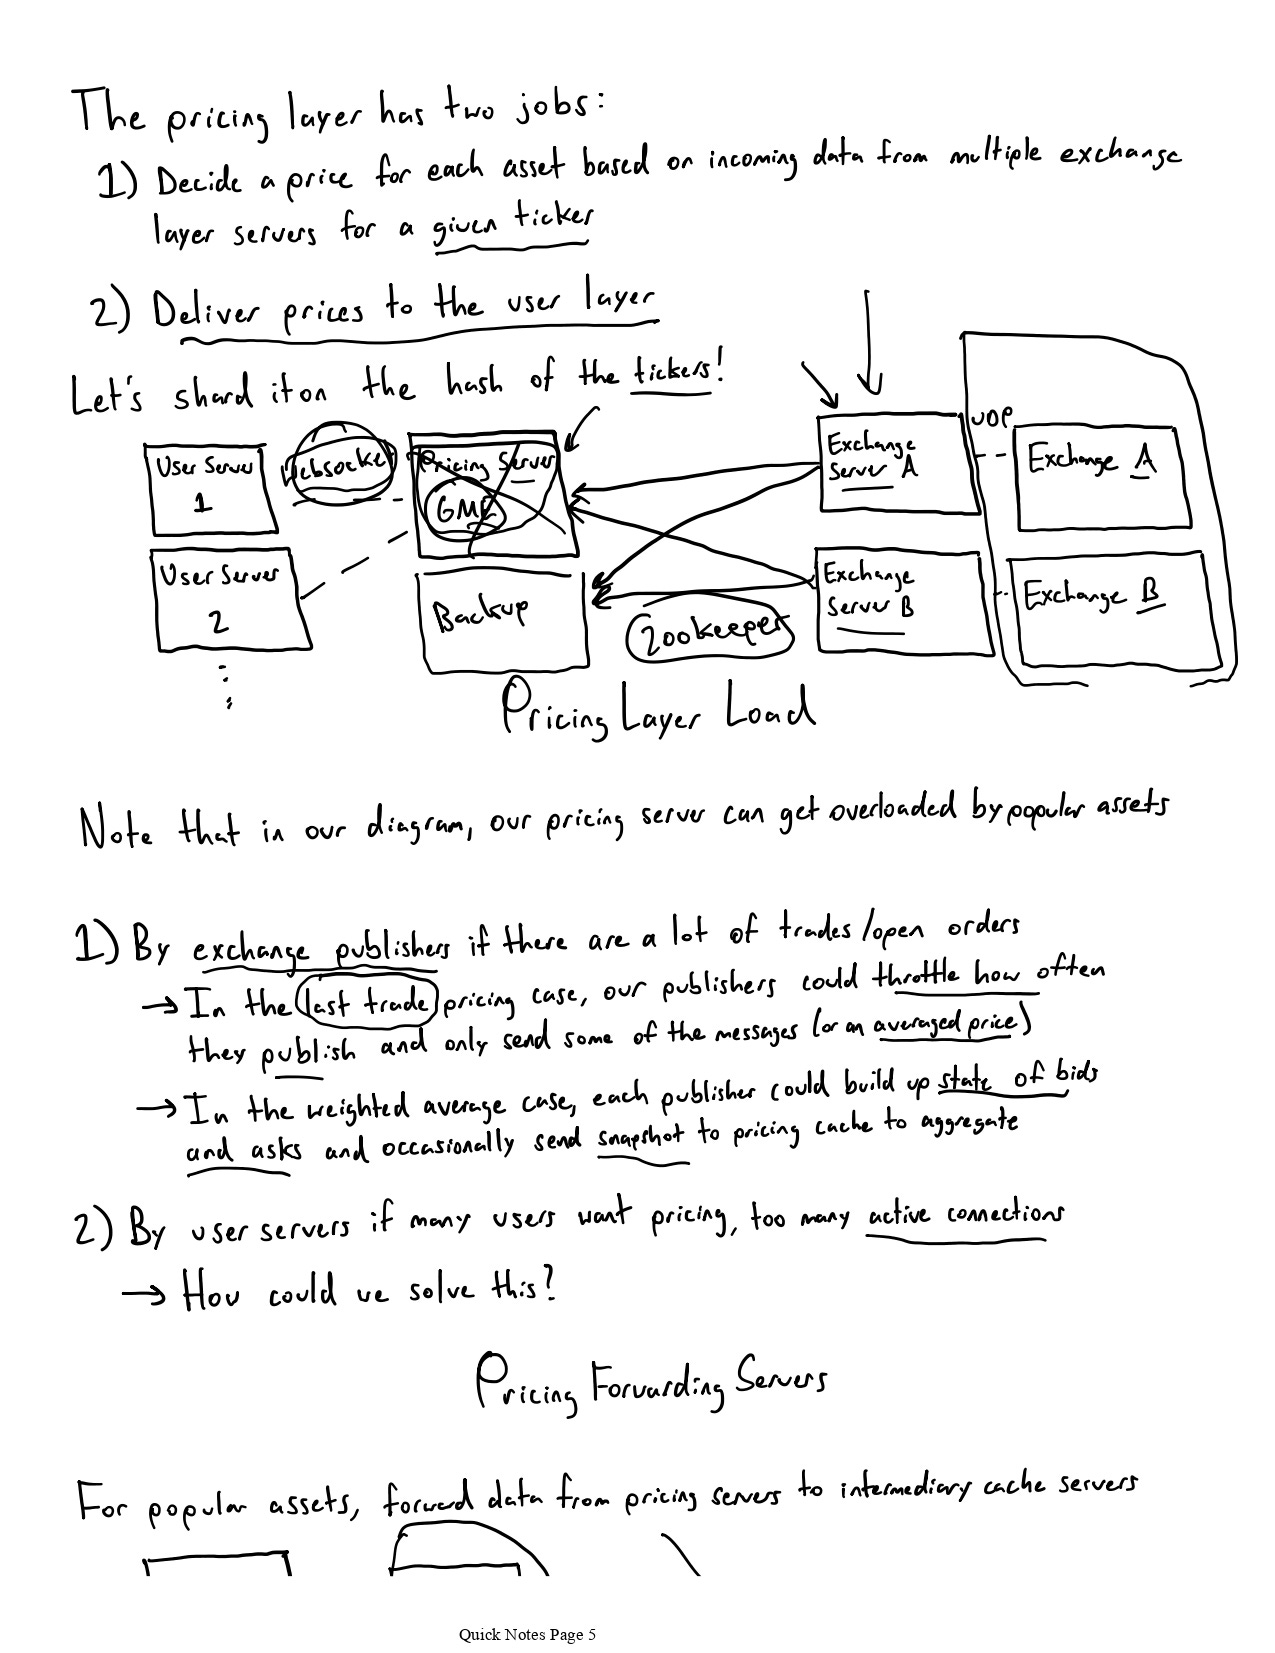 The pricing layer has two jobs:
1) Decide a price for each asset based on incoming data from multiple exchange
layer servers for a given ticker
2) Deliver prices to the user layer
Let's shard it on the hash of the tickers!
User Server
1
Websocket
Pricing Server
GME
Exchange
Server A
UDP
Exchange A
User Server
2
Backup
Zookeeper
Exchange
Server B
Exchange B
Pricing Layer Load
Note that in our diagram, our pricing server can get overloaded by popular assets
1) By exchange publishers if there are a lot of trades/open orders
→ In the last trade pricing case, our publishers could throttle how often
they publish and only send some of the messages (or an averaged price)
→ In the weighted average case, each publisher could build up state of bids
and asks and occasionally send snapshot to pricing cache to aggregate
2) By user servers if many users want pricing, too many active connections
→ How could we solve this?
Pricing Forwarding Servers
For popular assets, forward data from pricing servers to intermediary cache servers
Quick Notes Page 5